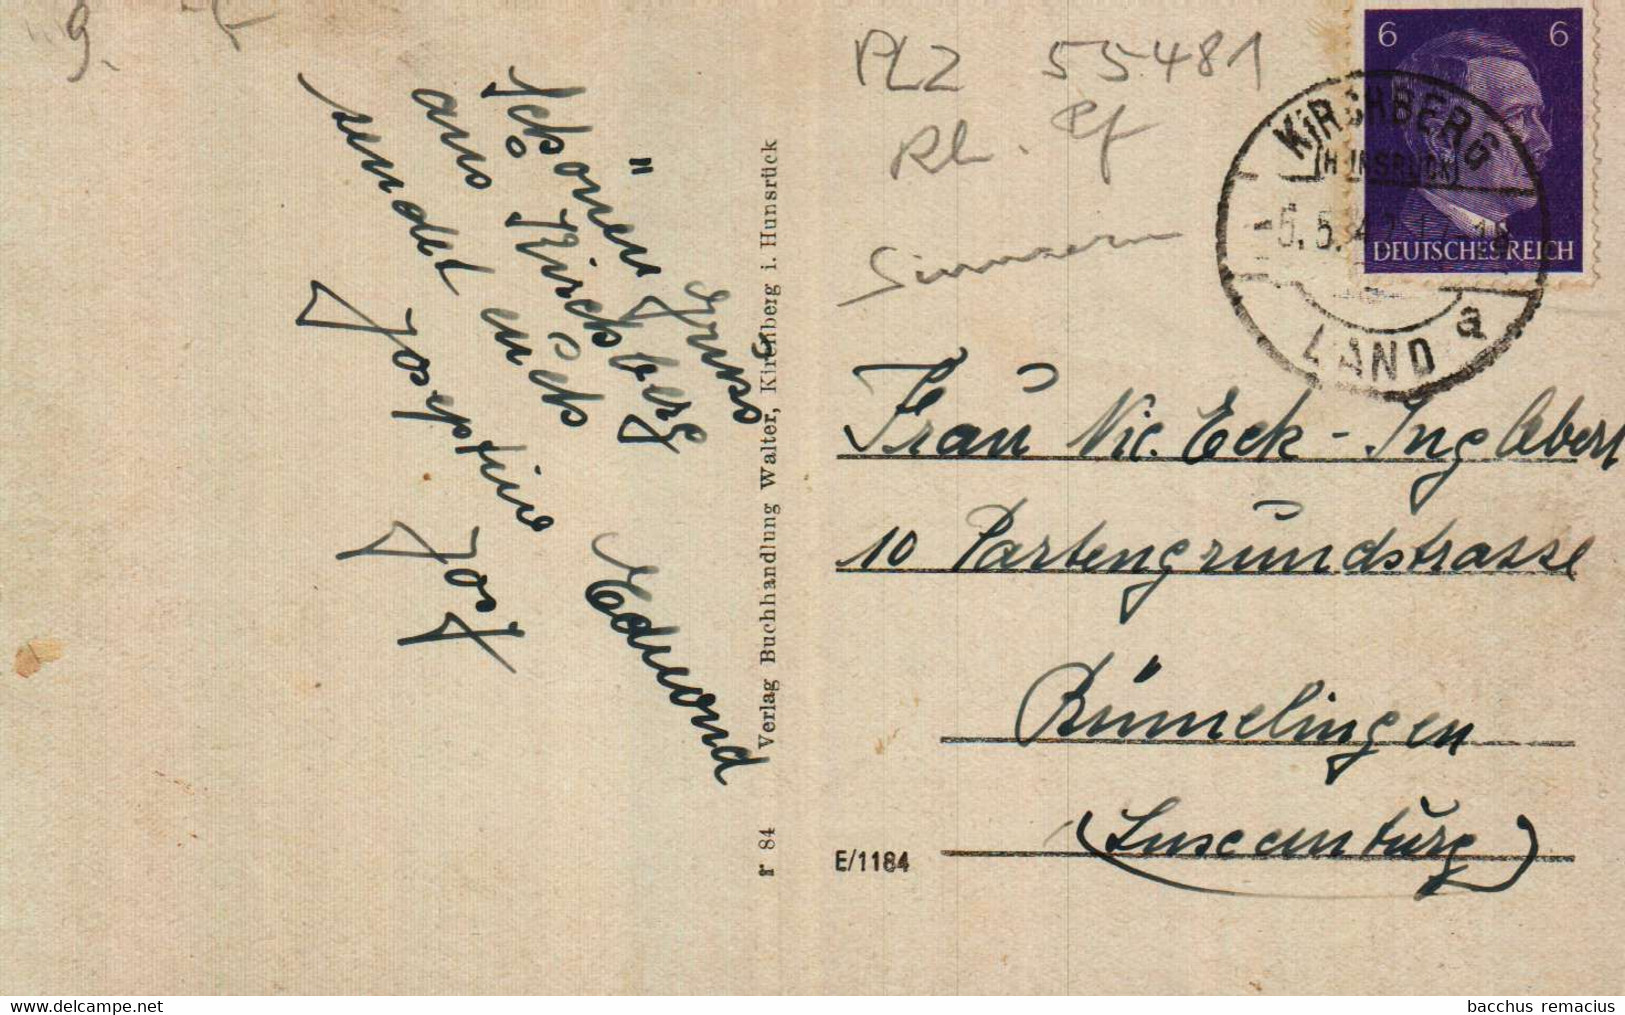 g.
Schönen Gruss
aus Kirchberg
sendet euch
Josephine
Jost
Edmond
r 84 Verlag Buchhandlung Walter, Kirchberg i. Hunsrück
E/1184
PLZ 55481
Rh. Pf
Simmern
6 6
DEUTSCHES REICH
KIRCHBERG
(HUNSRÜCK)
LAND
a
Frau Nic. Eck - Inglebert
10 Partengrundstrasse
Rümelingen
(Luxemburg)
bacchus remacius